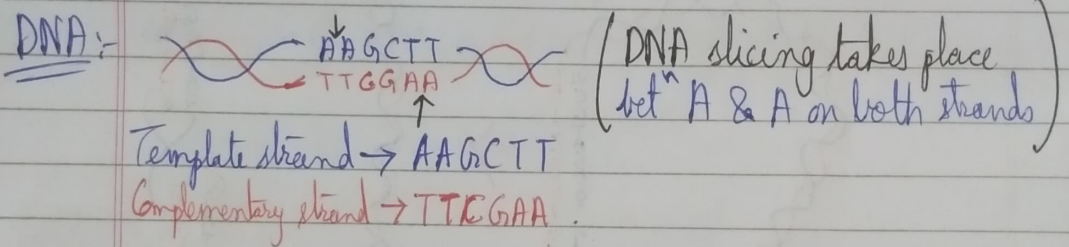 DNA:- AAGCTT (DNA slicing takes place
TTGGAA betn A & A on both strands)
Template strand → AAGCTT
Complementary strand → TTCGAA.